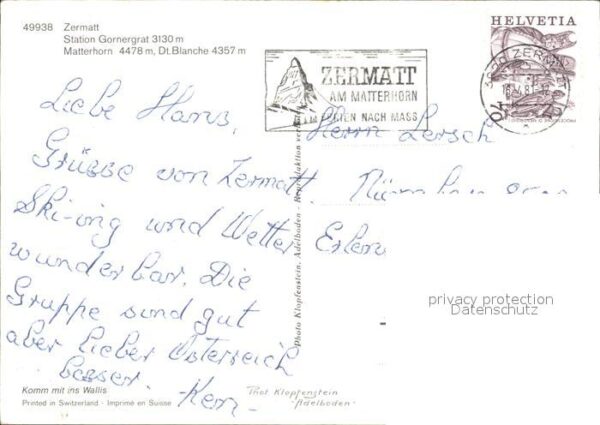 49938 Zermatt
Station Gornergrat 3130 m
Matterhorn 4478 m, Dt. Blanche 4357 m
HELVETIA
ZERMATT
AM MATTERHORN
FERIEN NACH MASS
3920 ZERMATT
70
Liebe Hans,
Grüsse von Zermatt.
Ski-ing und Wetter
wunderbar. Die
Gruppe sind gut
aber lieber Österreich
besser.
Ken-
Herrn Lersch
Erlen
Photo Klopfenstein, Adelboden - Reproduktion
privacy protection
Datenschutz
Komm mit ins Wallis
Printed in Switzerland - Imprimé en Suisse
Phot Klopfenstein
-Adelboden-